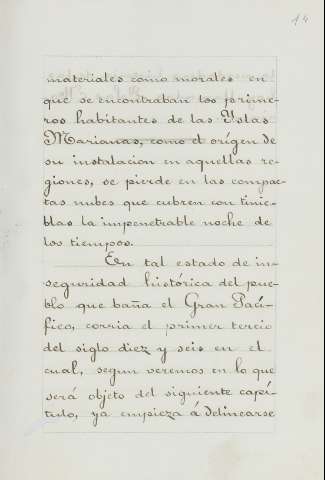 14
materiales como morales en
que se encontraban los prime-
ros habitantes de las Yslas
Marianas, como el orígen de
su instalacion en aquellas re-
giones, se pierde en las compac-
tas nubes que cubren con tinie-
blas la impenetrable noche de
los tiempos.
En tal estado de in-
seguridad histórica del pue-
blo que baña el Gran Pací-
fico, corria el primer tercio
del siglo diez y seis en el
cual, segun veremos en lo que
será objeto del siguiente capí-
tulo, ya empieza á delinearse